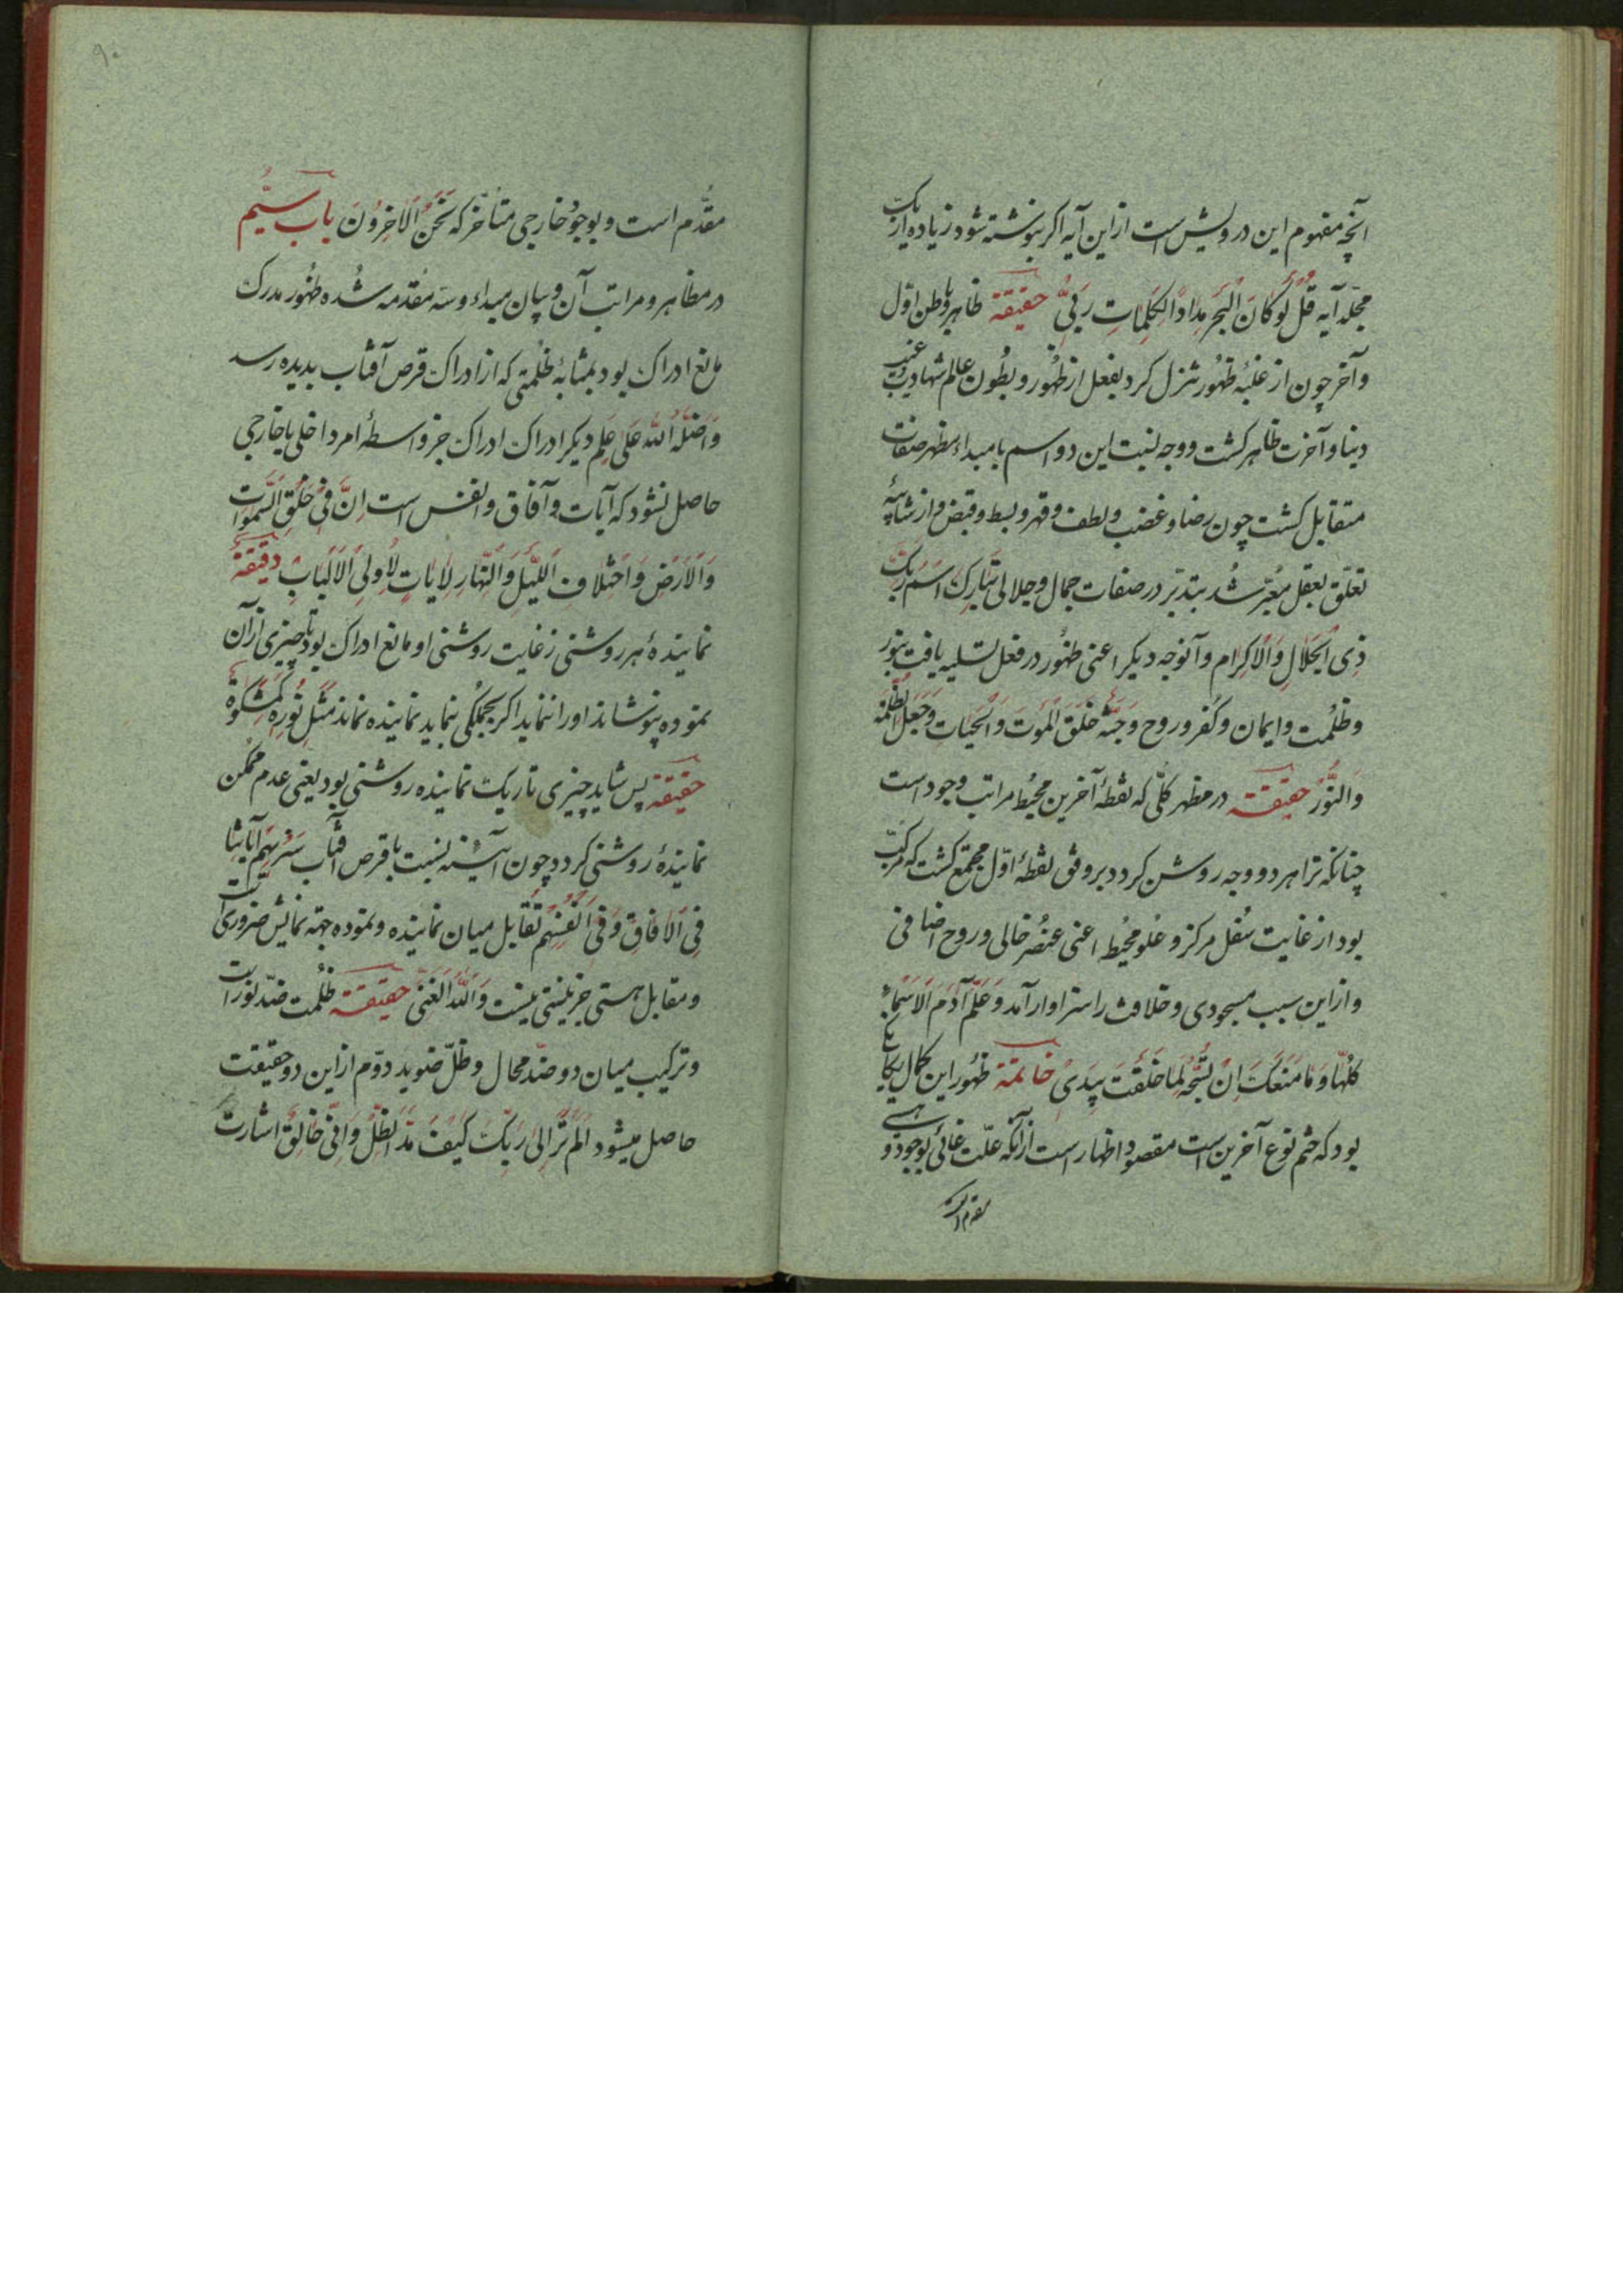 آنچه مفهوم این درویش است از این آیه اکر بنوشته شود زیاده از یک
مجلد آیه قُلْ لَوْ کَانَ الْبَحْرُ مِدَاداً لِکَلِمَاتِ رَبِّی حقیقة ظاهر و باطن اوّل
و آخر چون از غلبهٔ ظهور تنزل کرد بفعل از ظهور و بطون عالم شهادت و غیب
دنیا و آخرت ظاهر کشت و وجه نسبت این دو اسم با مبداء مظهر صفات
متقابل کشت چون رضا و غضب و لطف و قهر و بسط و قبض و از شایبهٔ
تعلّق بعقل معبّر شد بتدبّر در صفات جمال و جلالی تَبَارَکَ اسْمُ رَبِّکَ
ذِی الْجَلَالِ وَالْاِکرَام و آنوجه دیکر اعنی ظهور در فعل تسلیه یافت بنور
و ظلمت و ایمان و کفر و روح و جثّه خَلَقَ الْمَوْتَ وَالْحَیَاتِ وَجَعَلَ الظُّلُمَة
وَالنُّورُ حقیقة در مظهر کلّی که نقطهٔ آخرین محیط مراتب وجود است
چنانکه ترا هر دو وجه روشن کردد بر وفق نقطهٔ اوّل مجتمع کشت که مرکّب
بود از غایت سُفل مرکز و عُلو محیط اعنی عنصر خاکی و روح اضافی
و از این سبب مسجودی و خلافت را سزاوار آمد وَعَلَّمَ آدَمَ الْاَسْمَاءَ
کُلَّهَا وَ مَا مَنَعَکَ اِنْ تَسْجُدَ لِمَا خَلَقْتَ بِیَدَیَّ خاتمة ظهور این کمال یکبار
بود که ختم نوع آخرین است مقصود اظهار است از آنکه علّت غائی بوجود و
مقدم است
مقدّم است و بوجود خارجی متأخّر که نَحْنُ الْاٰخِرُونَ باب سیّم
در مظاهر و مراتب آن و بیان مبداء و سه مقدمه شده ظهور مدرک
مانع ادراک بود بمثابهٔ ظلمتی که از ادراک قرص آفتاب بدیده رسد
وَاَضَلَّهُ اللّٰه عَلٰی عِلْمٍ دیکر ادراک ادراک جز واسطهٔ امر داخلی یا خارجی
حاصل نشود که آیات و آفاق و انفس است اِنَّ فِی خَلْقِ السَّمٰوَات
وَالْاَرْضِ وَاخْتِلَافِ اللَّیْلِ وَالنَّهَارِ لَاٰیَاتٍ لِاُولِی الْاَلْبَابِ دقیقة
نمایندهٔ هر روشنی ز غایت روشنی او مانع ادراک بود تا چیزی از آن
نموده پوشاند او را ننماید اکر بجملکی بنماید نماینده نماند مَثَلُ نُورِهٖ کَمِشْکٰوةٍ
حقیقة پس شاید چیزی تاریک نماینده روشنی بود یعنی عدم ممکن
نمایندهٔ روشنی کردد چون آینه نسبت با قرص آفتاب سَنُرِیهِمْ آیَاتِنَا
فِی الْاٰفَاقِ وَفِی اَنْفُسِهِمْ تقابل میان نماینده و نموده جهة نمایش ضروری است
و مقابل هستی جز نیستی نیست وَاللّٰهُ الْغَنِیُّ حقیقة ظلمت ضدّ نور است
و ترکیب میان دو ضدّ محال و ظلّ ضوید دوّم از این دو حقیقت
حاصل میشود اَلَمْ تَرَ اِلٰی رَبِّکَ کَیْفَ مَدَّ الظِّلَّ وَ اِنِّی خَالِقٌ اشارت